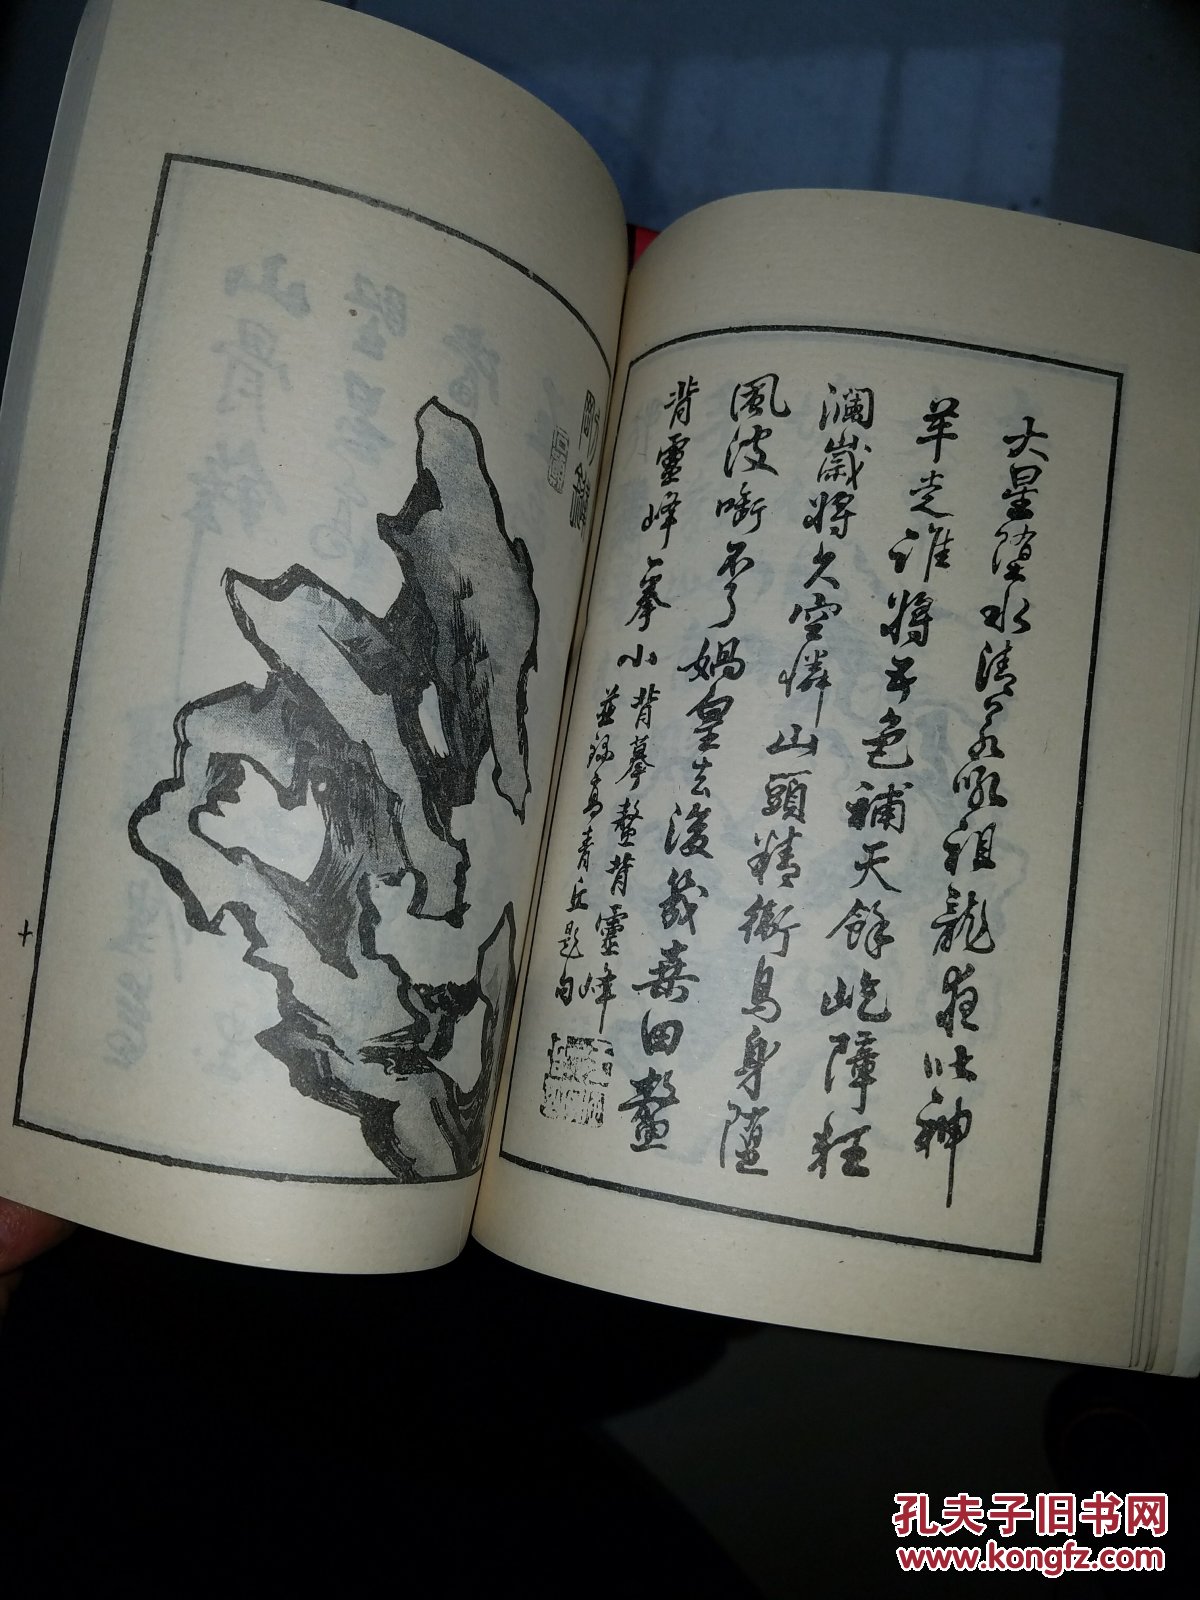 大星墮水清泉吼祖龍夜叱神
羊走誰將五色補天餘屹障狂
瀾歲將久空憐山頭精衛鳥身墮
風波啣不了媧皇去後幾桑田鰲
背靈峰一拳小
背摹鰲背靈峰
並錄高青丘題句
十
孔夫子旧书网
www.kongfz.com